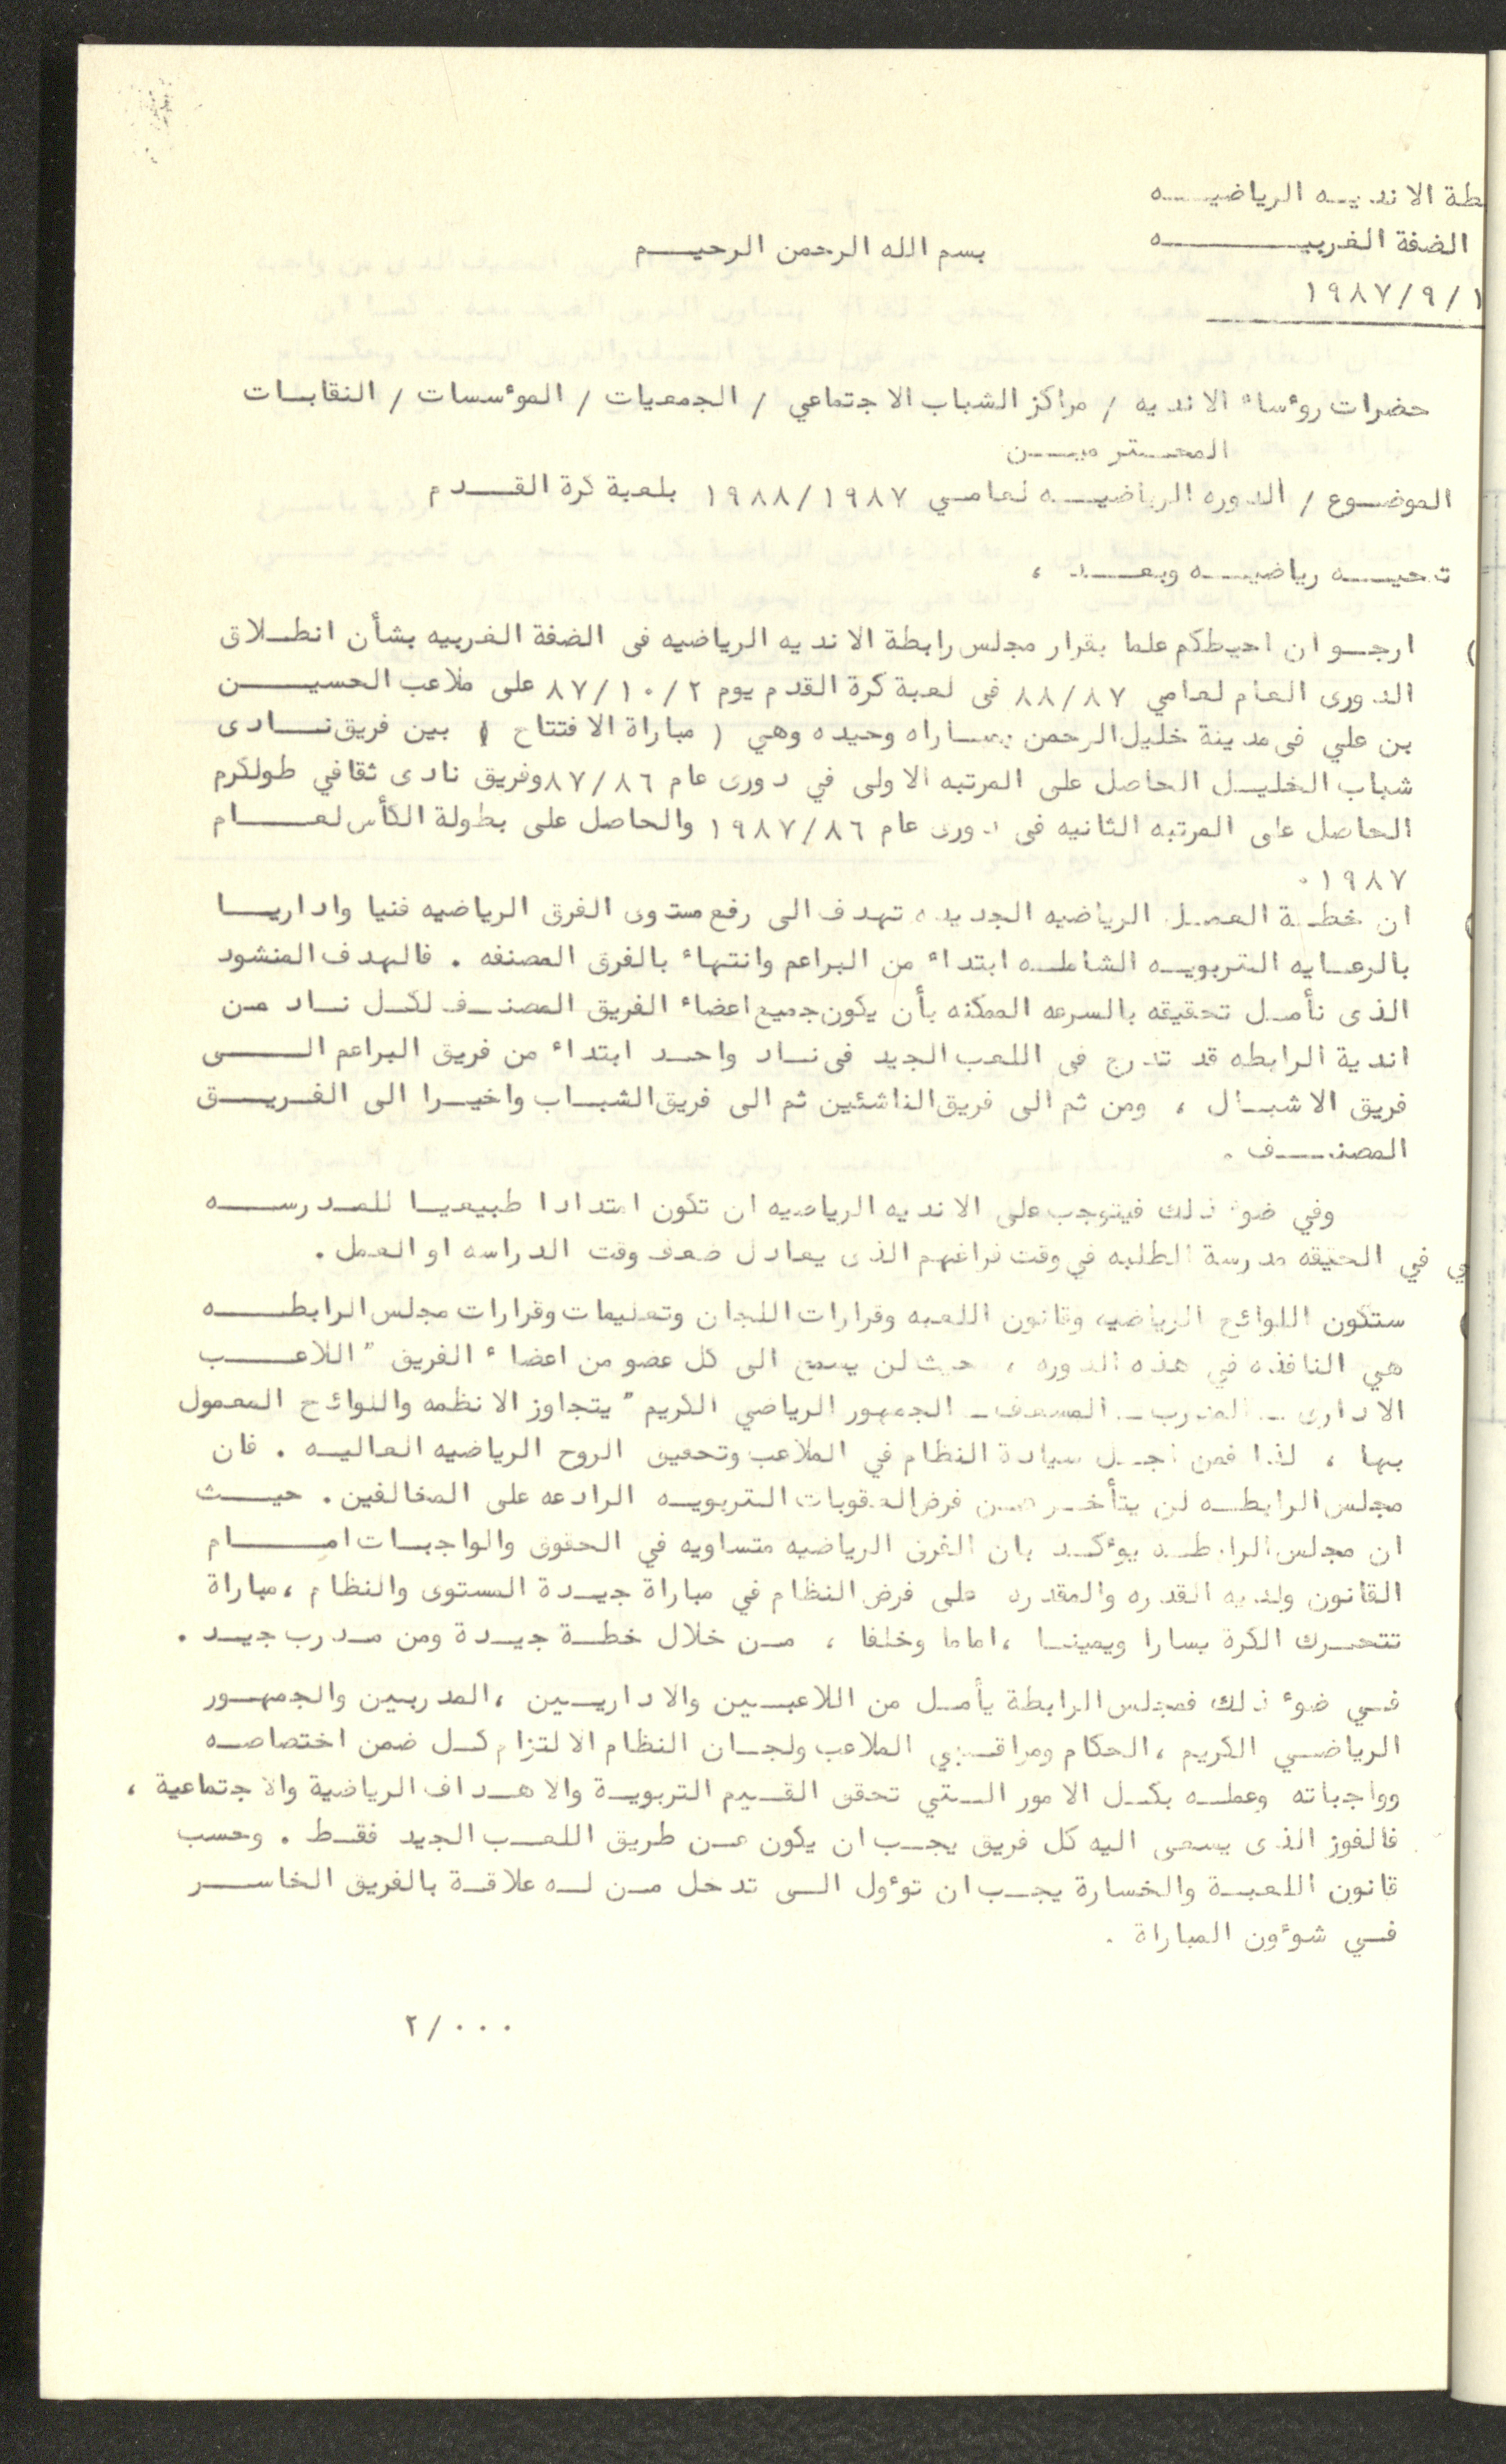 طة الانديه الرياضيه
الضفة الغربيه
بسم الله الرحمن الرحيم
١٩٨٧/٩/١
حضرات روٴساء الانديه / مراكز الشباب الاجتماعي / الجمعيات / الموٴسسات / النقابات
المحترمين
الموضوع / الدوره الرياضيه لعامي ١٩٨٨/١٩٨٧ بلعبة كرة القدم
تحيه رياضيه وبعد ،
) ارجو ان احيطكم علما بقرار مجلس رابطة الانديه الرياضيه فى الضفة الغربيه بشأن انطلاق
الدورى العام لعامي ٨٨/٨٧ فى لعبة كرة القدم يوم ٨٧/١٠/٢ على ملاعب الحسين
بن علي فى مدينة خليل الرحمن بمباراه وحيده وهي ( مباراة الافتتاح ) بين فريق نادى
شباب الخليل الحاصل على المرتبه الاولى في دورى عام ٨٧/٨٦ وفريق نادى ثقافي طولكرم
الحاصل على المرتبه الثانيه فى دورى عام ١٩٨٧/٨٦ والحاصل على بطولة الكأس لعام
١٩٨٧ .
) ان خطة العمل الرياضيه الجديده تهدف الى رفع مستوى الفرق الرياضيه فنيا واداريا
بالرعايه التربويه الشامله ابتداء من البراعم وانتهاء بالفرق المصنفه . فالهدف المنشود
الذى نأمل تحقيقه بالسرعه الممكنه بأن يكون جميع اعضاء الفريق المصنف لكل ناد من
اندية الرابطه قد تدرج فى اللعب الجيد فى ناد واحد ابتداء من فريق البراعم الى
فريق الاشبال ، ومن ثم الى فريق الناشئين ثم الى فريق الشباب واخيرا الى الفريق
المصنف .
وفي ضوء ذلك فيتوجب على الانديه الرياضيه ان تكون امتدادا طبيعيا للمدرسه
في الحقيقه مدرسة الطلبه في وقت فراغهم الذى يعادل ضعف وقت الدراسه او العمل .
) ستكون اللوائح الرياضيه وقانون اللعبه وقرارات اللجان وتعليمات وقرارات مجلس الرابطه
هي النافذه في هذه الدوره ، حيث لن يسمح الى كل عضو من اعضاء الفريق " اللاعب
الادارى - المدرب - المسعف - الجمهور الرياضي الكريم " يتجاوز الانظمه واللوائح المعمول
بها ، لذا فمن اجل سيادة النظام في الملاعب وتحقيق الروح الرياضيه العاليه . فان
مجلس الرابطه لن يتأخر من فرض العقوبات التربويه الرادعه على المخالفين . حيث
ان مجلس الرابطه يوٴكد بان الفرق الرياضيه متساويه في الحقوق والواجبات امام
القانون ولديه القدره والمقدره على فرض النظام في مباراة جيدة المستوى والنظام ، مباراة
تتحرك الكرة يسارا ويمينا ، اماما وخلفا ، من خلال خطة جيدة ومن مدرب جيد .
في ضوء ذلك فمجلس الرابطة يأمل من اللاعبين والاداريين ، المدربين والجمهور
الرياضي الكريم ، الحكام ومراقبي الملاعب ولجان النظام الالتزام كل ضمن اختصاصه
وواجباته وعمله بكل الامور التي تحقق القيم التربوية والاهداف الرياضية والاجتماعية ،
فالفوز الذى يسعى اليه كل فريق يجب ان يكون عن طريق اللعب الجيد فقط . وحسب
قانون اللعبة والخسارة يجب ان توٴول الى تدخل من له علاقة بالفريق الخاسر
في شوٴون المباراة .
٢/ ٠٠٠